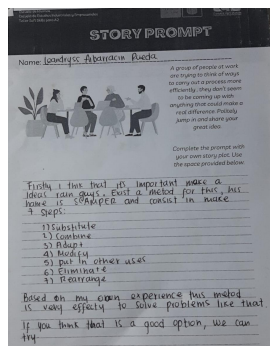 STORY PROMPT
Name: Leandryss Albarracin Rueda
A group of people at work
are trying to think of ways
to carry out a process more
efficiently, they don't seem
to be coming up with
anything that could make a
real difference. Politely
jump in and share your
great idea
Complete the prompt with
your own story plot. Use
the space provided below
Firstly I think that it's important make a
Ideas rain guys. Exist a metod for this, his
name is SCAMPER and consist in make
7 steps:
1) Substitute
2) Combine
3) Adapt
4) Modify
5) put in other uses
6) Eliminate
7) Rearrange
Based on my own experience this metod
is very effecty to solve problems like that
If you think that is a good option, we can
try.